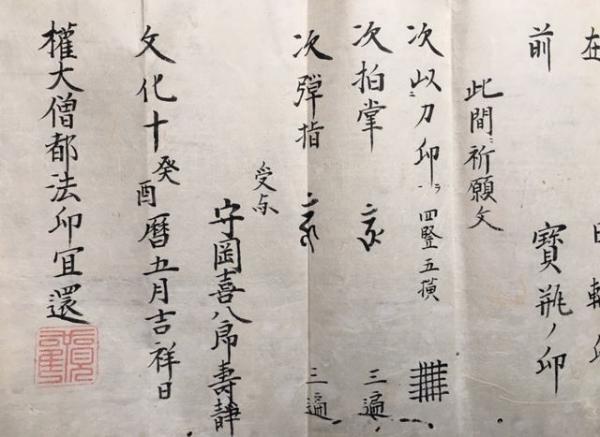 前 寶瓶ノ印
此間ニ祈願文
次以ニ刀印ヲ 四竪五横
次拍掌 三遍
次彈指 三遍
受与
守岡喜八郎壽静
文化十癸酉暦五月吉祥日
權大僧都法印宜還